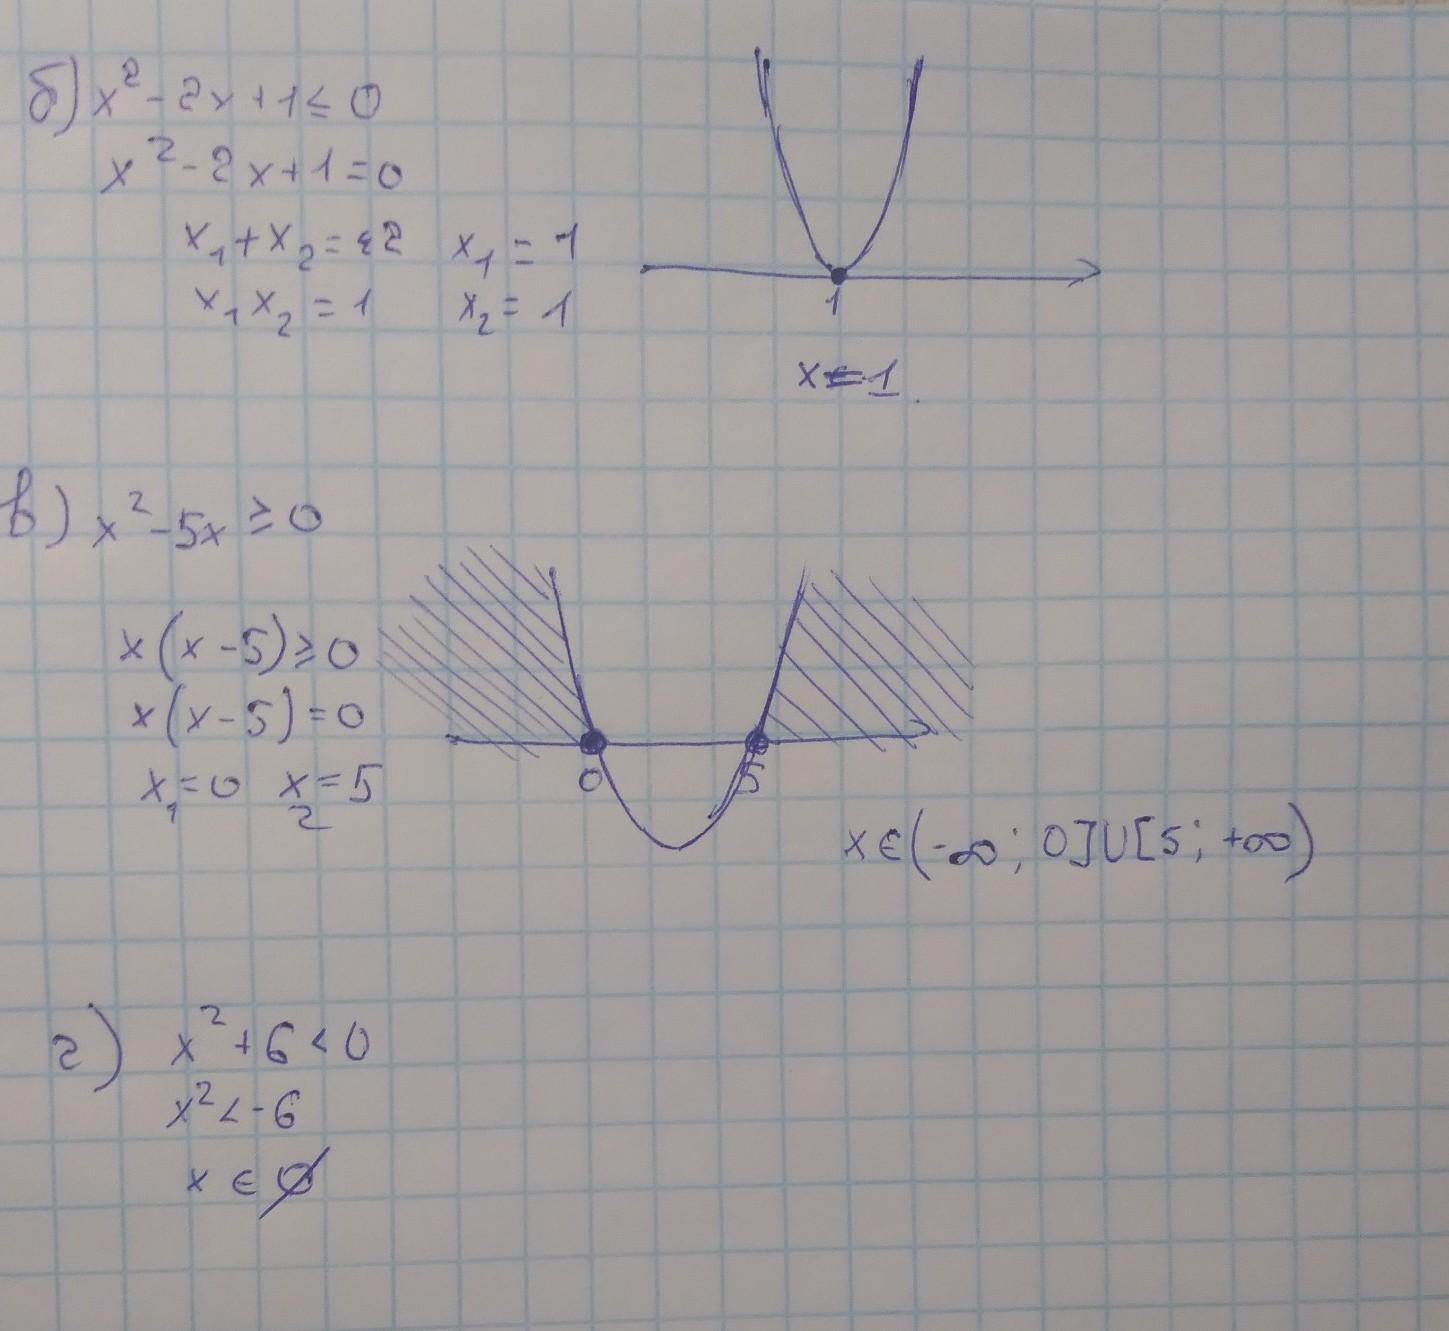 б) x² - 2x + 1 ≤ 0
x² - 2x + 1 = 0
x₁ + x₂ = 2 x₁ = 1
x₁ x₂ = 1 x₂ = 1
1
x = 1
в) x² - 5x ≥ 0
x(x - 5) ≥ 0
x(x - 5) = 0
x₁ = 0 x₂ = 5
0 5
x ∈ (-∞; 0] ∪ [5; +∞)
г) x² + 6 < 0
x² < -6
x ∈ ∅